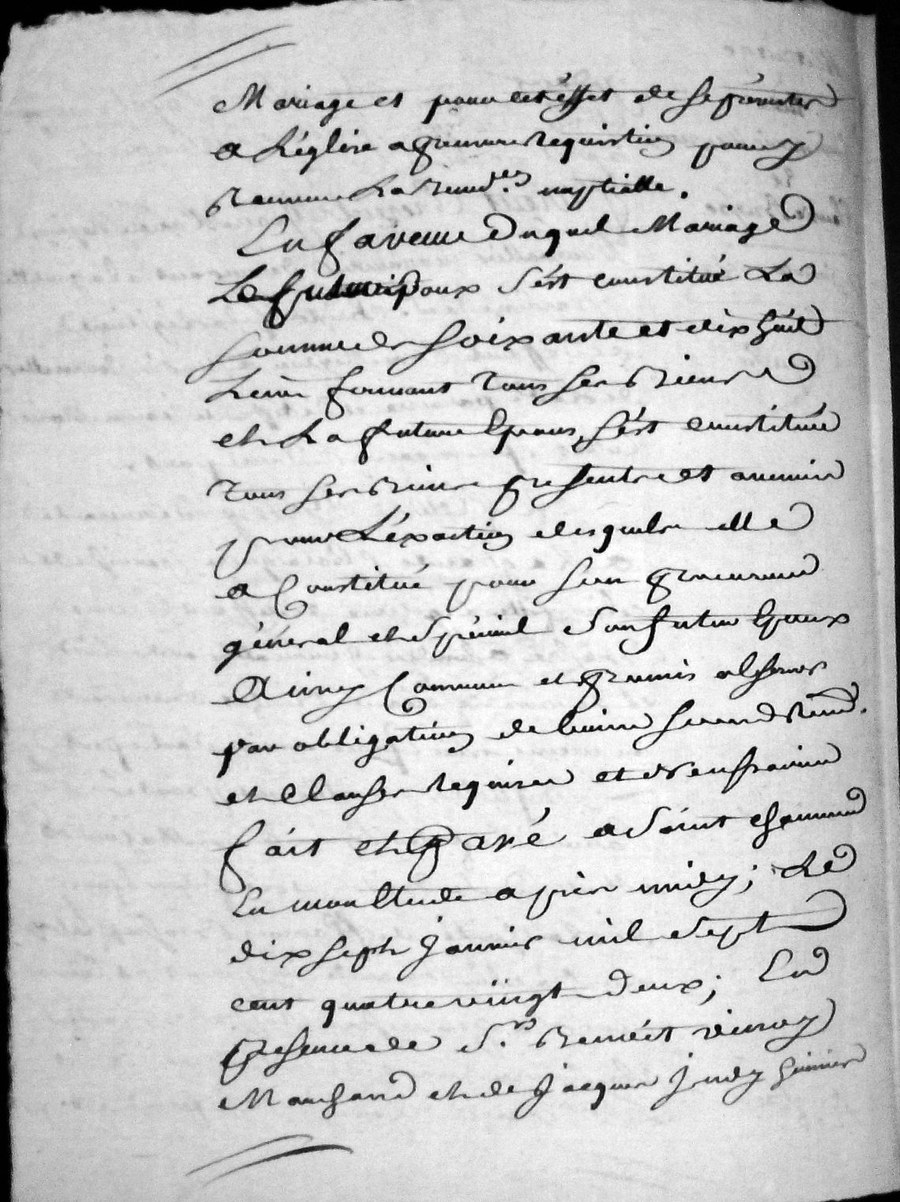 Mariage et pour cet éffet de se présenter
a L'église a premiere requisition pour y
recevoir La Bened.on nuptialle.
En faveur Duquel Mariage
Le futur Epoux s'ést constitué La
somme de soixante et dix huit
Livres formant tous ses Biens
et La future Epouse s'ést constituée
tous ses Biens présents et avenir
pour L'éxaction desquels elle
a Constitué pour son procureur
général et spécial son futur Epoux
Ainsy Convenu et promis observer
par obligation de leurs Biens
et Clauses requises et
fait et Passé a saint chamond
En mon Etude apres midy; Le
dix sept Janvier mil sept
cent quatre vingt Deux; En
présence de S.rs Benoit
Marchand et de Jacques